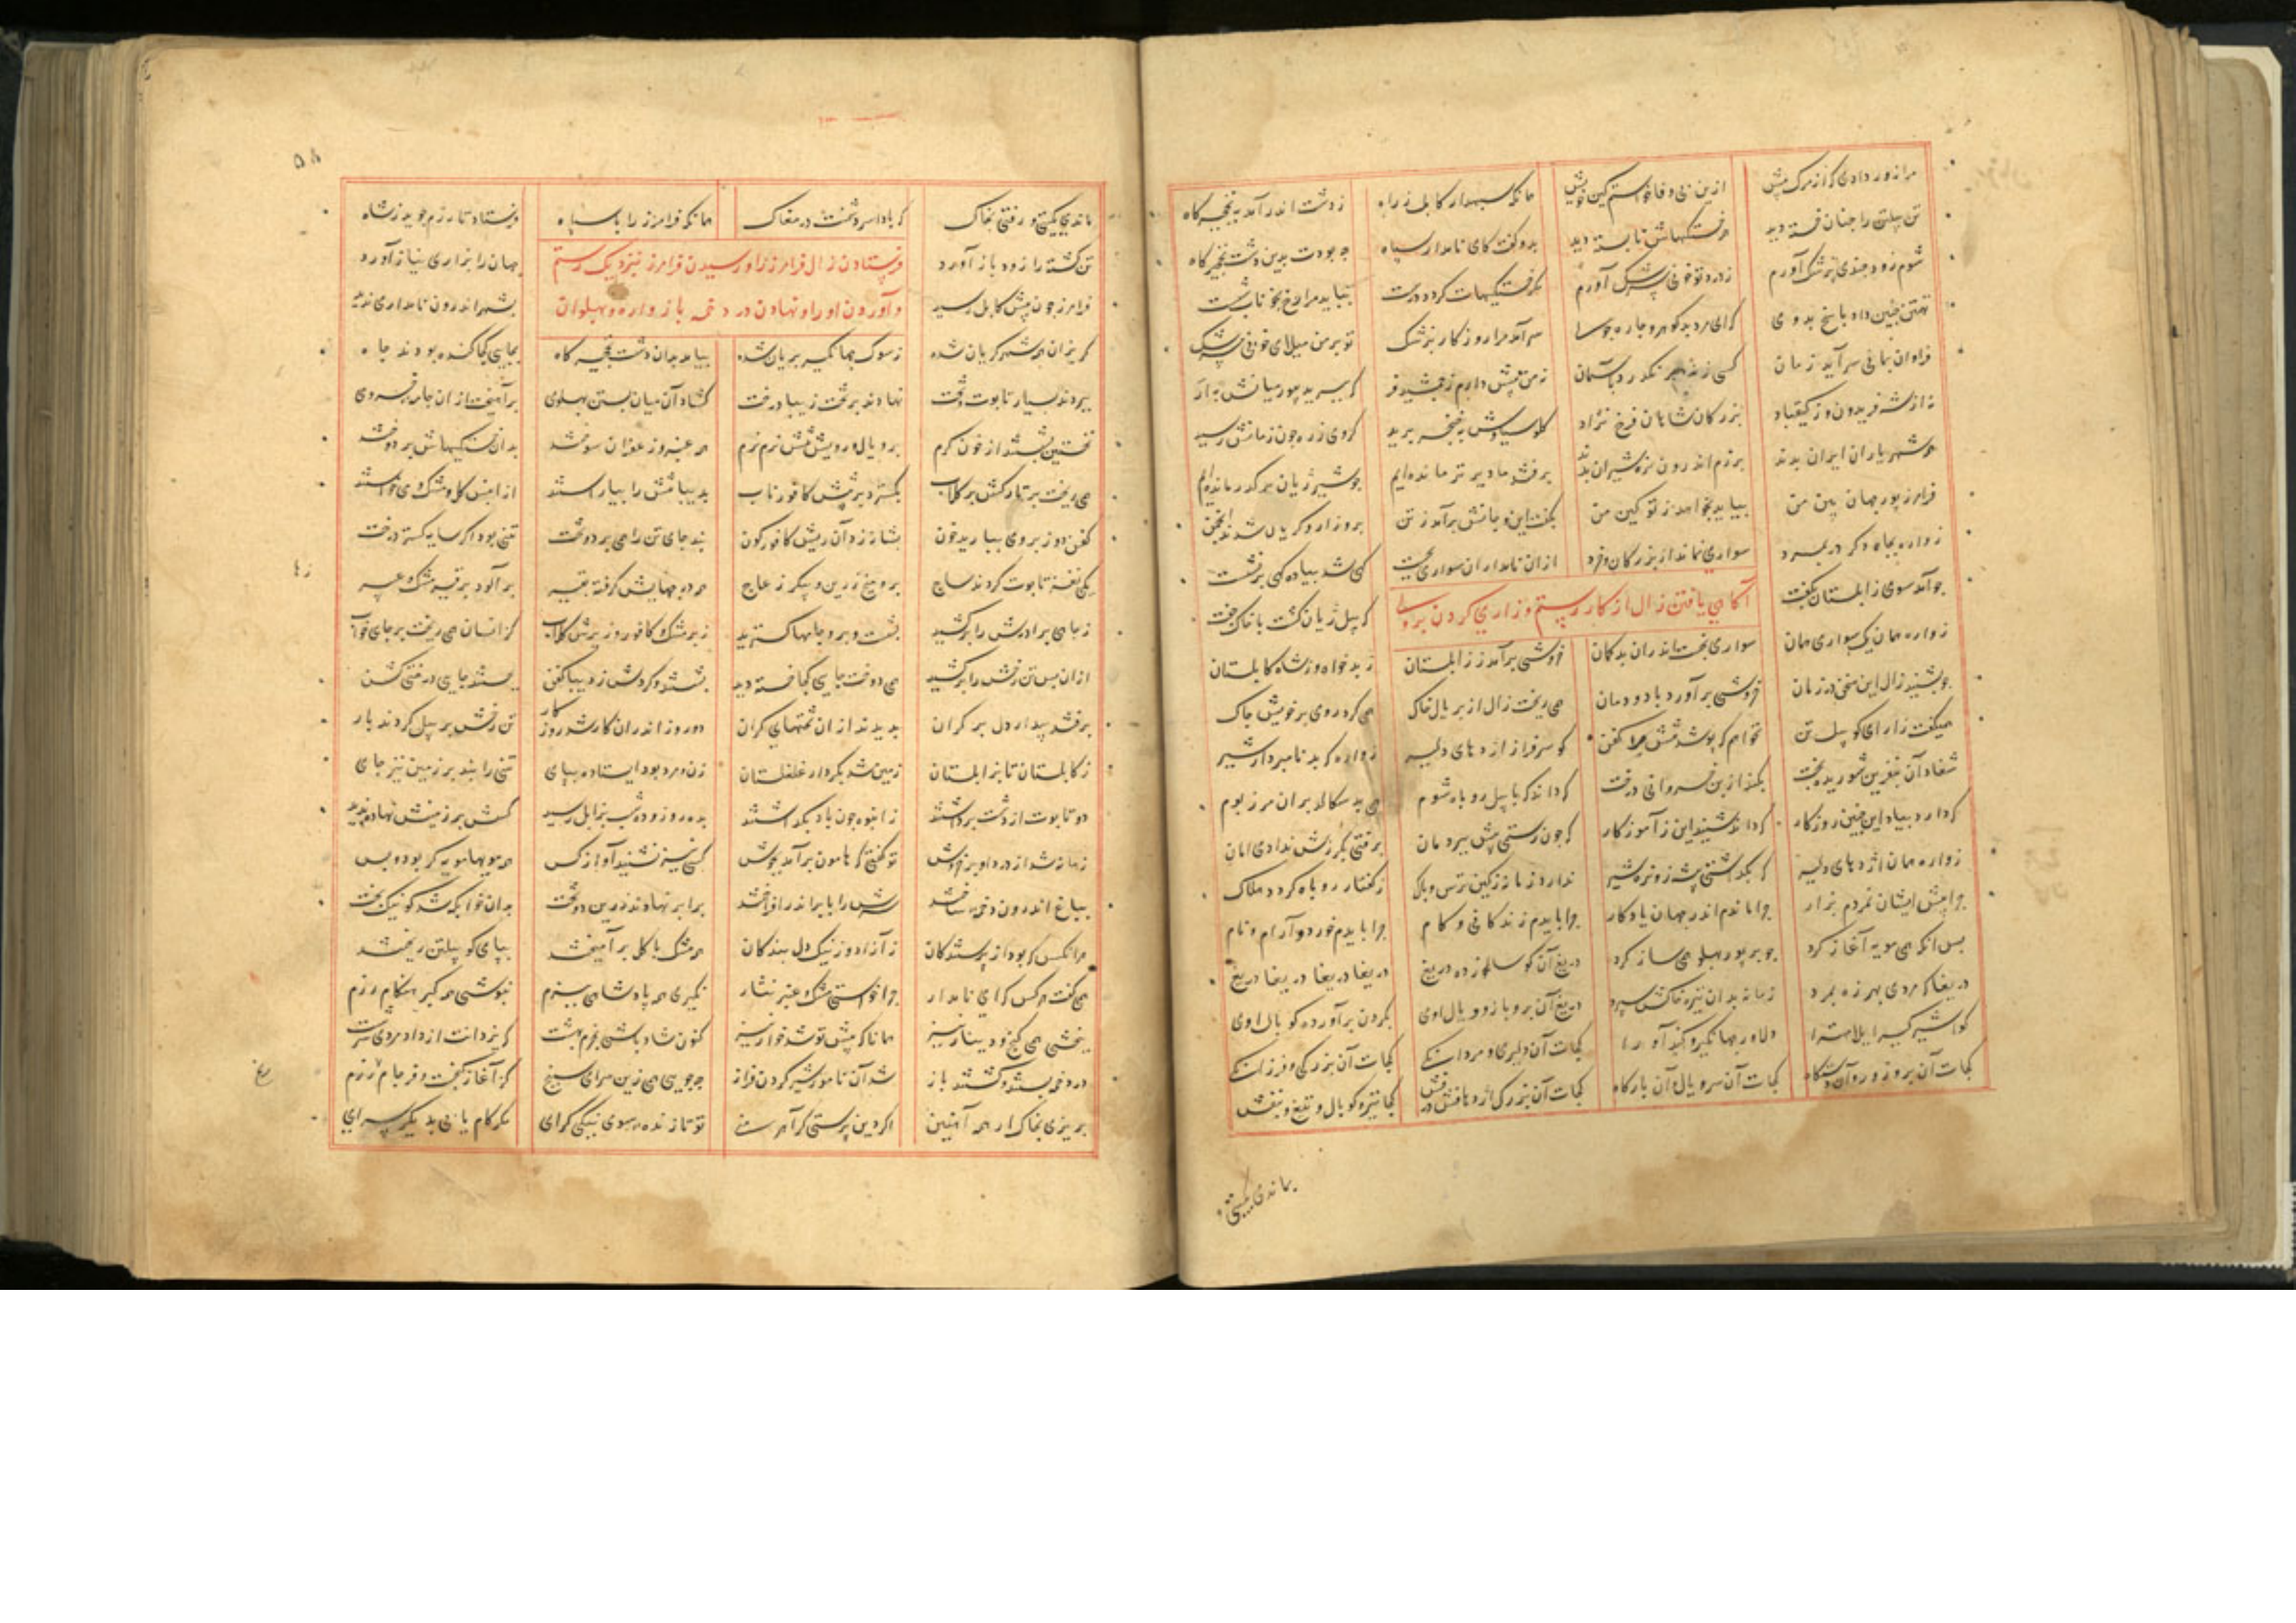 مرا زور دادی که از مرگ پیش ازین بی وفا خواستم کین خویش همانکه سپهدار کابل ز راه ز دشت اندر آمد به نخجیرگاه
تن پیلتن را چنان خسته دید همه خستگیهاش نابسته دید بدو گفت کای نامدار سپاه چه بودت بدین دشت نخجیرگاه
شوم زود چندی پزشک آورم ز درد تو خونی سرشک آورم مگر خستگیهات گردد درست نباید مرا رخ بخوناب شست
تهمتن چنین داد پاسخ بدوی که ای مرد بدگوهر و چاره جوی سر آمد مرا روزگار پزشک تو بر من میالای خونی سرشک
فراوان نمانی سر آید زمان کسی زنده بر نگذرد بآسمان ز من پیش دارم ز جمشید فر که ببرید بیور میانش به ار
نه از شه فریدون و ز کیقباد بزرگان شاهان فرخ نژاد گلوی سیاوش به خنجر برید گروی زره چون زمانش رسید
همه شهریاران ایران بدند برزم اندرون نره شیران بدند برفتند ما دیرتر مانده‌ایم چو شیر ژیان برگذر مانده‌ایم
فرامرز پور جهان بین من بیاید بخواهد ز تو کین من بگفت این و جانش برآمد ز تن برو زار و گریان شدند انجمن
زواره بچاه دگر در بمرد سواری نماند از بزرگان و خرد از آن نامداران سواری بجست گهی شد پیاده گهی برنشست
چو آمد سوی زابلستان بگفت که پیل ژیان گشت با خاک جفت
آکاهی یافتن زال از کار رستم و زاری کردن بر وی
زواره همان یک سواری همان سواری نجست اندران بدگمان خروشی برآمد ز زابلستان ز بدخواه و ز شاه کابلستان
چو بشنید زال این سخن در زمان خروشی برآورد با دود مان همی ریخت زال از بر یال خاک همی کرد روی بر خویش چاک
همیگفت زار ای گو پیلتن نخواهم که پوشد تنش جز کفن گو سرفراز اژدهای دلیر زواره که بد نامبردار شیر
شغاد آن بنفرین شوریده بخت بکند از بن خسروانی درخت که داند که با پیل روباه شوم همی بد سگالد بران مرز بوم
که دارد بیاد این چنین روزگار که داند شنید این ز آموزگار که چون رستمی پیش بیر دمان برفتی بگرزش ندادی امان
زواره همان اژدهای دلیر که بگذاشتی بیشه ز و نره شیر ندارد زمانه ز کین ترس و باک ز گفتار روباه گردد هلاک
چرا پیش ایشان نمردم بزار چرا ماندم اندر جهان یادگار چرا بایدم زندگانی و کام چرا بایدم خورد و آرام و نام
پس آنکه همی مویه آغاز کرد چو بر پور پهلو همی ساز کرد دریغ آن گو سالزده دریغ دریغا دریغا دریغا دریغ
دریغا که مردی بهرزه بمرد زمانه بدان تیره خاکش سپرد دریغ آن بر و بازو و یال اوی بگردن برآورده کوپال اوی
گوا شیرگیرا یلا مهترا دلاور جهانگیر و کندآورا کجات آن دلیری و مردانگی کجات آن بزرگی و فرزانگی
کجات آن بر و زور و آن دستگاه کجات آن سر و یال و آن بارگاه کجات آن بزرگ اژدهافش درفش کجا نیزه و کوپال و تیغ و بنفش
بماندی بگیتی و
۵۸
نماندی بگیتی و رفتی بخاک که بادا سر دشمنت در مغاک همانکه فرامرز را با سپاه فرستاد تا رزم جوید ز شاه
تن کشته را زود باز آورد جهان را بزاری نیاز آورد
فرستادن زال فرامرز را و رسیدن فرامرز بنزدیک رستم
و آوردن او را و نهادن در دخمه با زواره و پهلوان
فرامرز چون پیش کابل رسید بشهر اندرون نامداری ندید
گریزان همه شهر گریان شده ز سوک جهانگیر بریان شده بیامد بدان دشت نخجیرگاه بجایی کجا کنده بودند چاه
ببردند بسیار تابوت و تخت نهادند بر تخت زیبا درخت گشاد آن میان بستن پهلوی برآهیخت از آن جامه خسروی
نخستین بشستند از خون گرم بر و یال و ریش و تنش نرم نرم همه عنبر و زعفران سوختند بدان خستگیهاش بردوختند
همی ریخت بر تارکش بر گلاب بگسترد بر تنش کافور ناب بدیبا تنش را بیاراستند از آن پس گل و مشک و می خواستند
کفن دوز بر وی ببارید خون بشانه زد آن ریش کافورگون نبد جای تن را همی بر دو تخت تنی بود اگر سایه گستر درخت
یکی نغز تابوت کردند ساج برو میخ زرین و پیکر ز عاج همه درزهایش گرفته بقیر برآلود بر قیر مشک و عبیر
ز جاهی برادرش را برکشید بشست و برو جامها گسترید زبر مشک و کافور و زیرش گلاب کزانسان همی ریخت بر جای خواب
از آن پس تن رخش را برکشید همی دوخت جایی کجا خسته دید بشستند و کردش ز دیبا کفن بجستند جایی درختی کشن
برفتند بیدار دل بر گران بدیدند از آن تختهای گران دو روز اندر آن کار شد روزگار تن رخش بر پیل کردند بار
ز کابلستان تا بزابلستان زمین شد بکردار غلغلستان زن و مرد بود ایستاده بپای تنی را نبد بر زمین نیز جای
دو تابوت از دشت برداشتند ز انبوه چون باد بگذاشتند بده روز و ده شب بزابل رسید کسش بر زمینش نهاده ندید
زمانه شد از درد او پر خروش تو گفتی که هامون برآمد بجوش کسی نیز نشنید آواز کس همه بومها مویه گر بود و بس
بباغ اندرون دخمه ساختند سرش را بابر اندر افراختند برابر نهادند زرین دو تخت بدان خوابگه شد گو نیکبخت
هر آنکس که بود از پرستندگان ز آزاد و ز نیک دل بندگان همه مشک با گل برآمیختند بپای گو پیلتن ریختند
همی گفت هر کس که ای نامدار چرا خواستی مشک و عنبر نثار نگیری همه پادشاهی ببزم نپوشی همه گبر هنگام رزم
نبخشی همی گنج و دینار نیز همانا که پیشت تو شد خوار چیز کنون شاد باشی بخرم بهشت که یزدانت از داد و مردی سرشت
در دخمه بستند و گشتند باز شد آن نامور شیر گردن فراز چه جویی همی زین سرای سپنج کز آغاز گنجست و فرجام رنج
بریزی بخاک ار همه آهنین اگر دین پرستی گر آهرمنی تو تا زنده سوی نیکی گرای مگر کام یابی بدیگر سرای